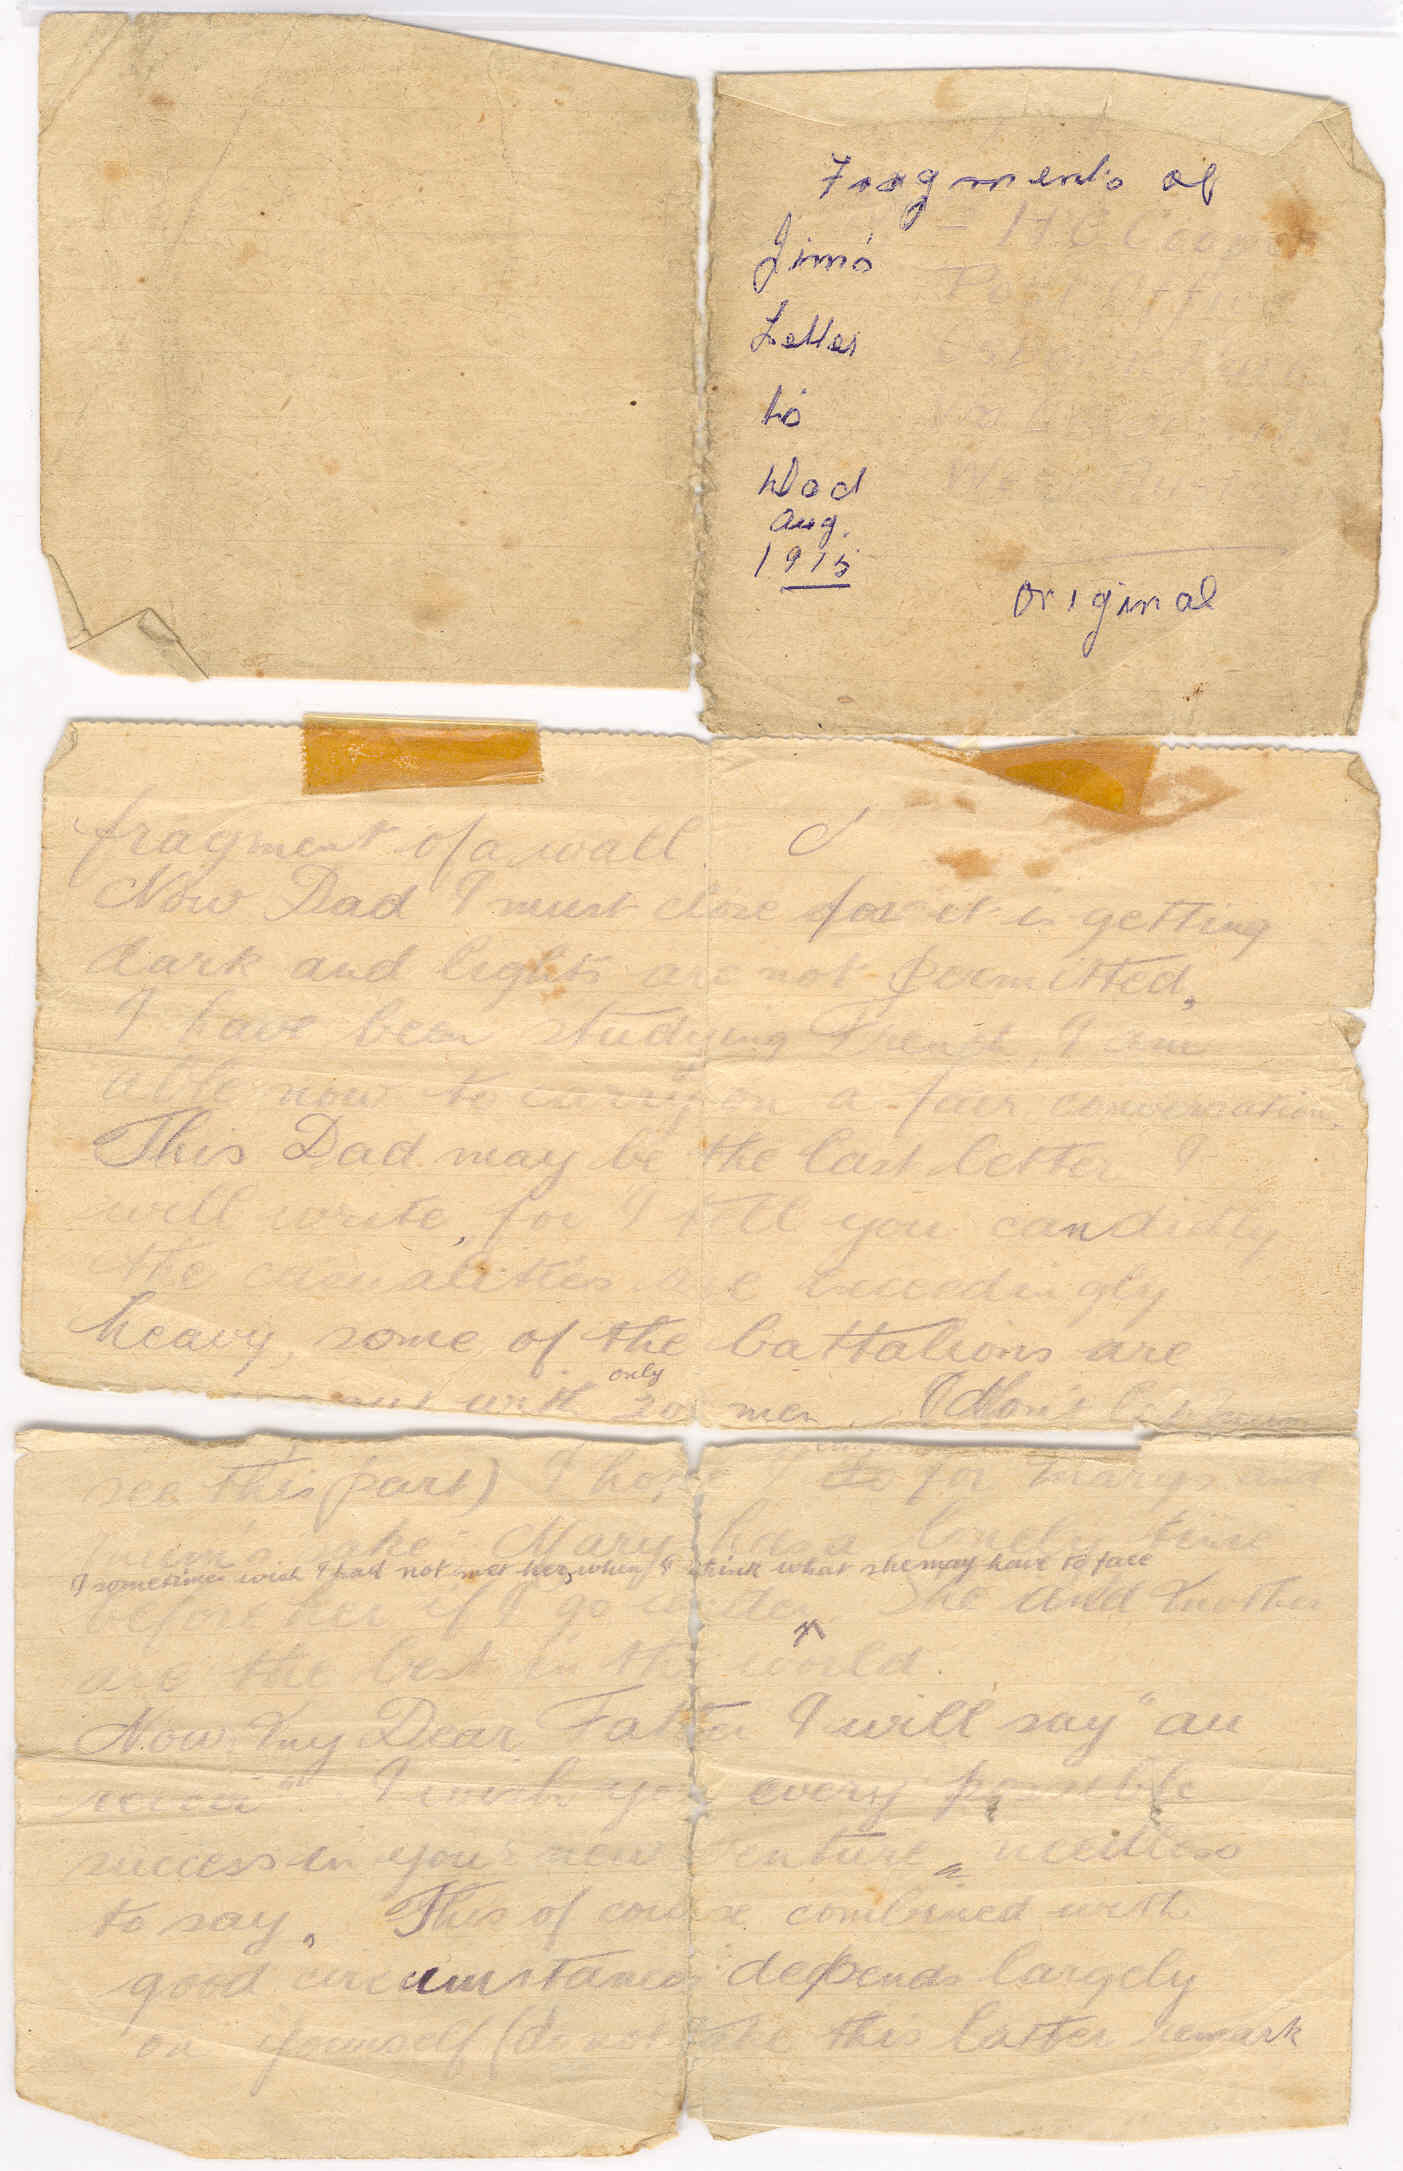 Fragments of
Jim's
Letter
to
Dad
Aug.
1915
Original
Post Office
fragment of a wall
Now Dad I must close for it is getting
dark and lights are not permitted,
I have been studying French, I am
able now to carry on a fair conversation.
This Dad may be the last letter I
will write, for I tell you candidly
the casualities are exceedingly
heavy, some of the battalions are
out with only 20 men. (Don't let
see this part) I hope I do for Mary's and
mum's sake. Mary has a lonely time
I sometimes wish I had not met her, when I think what she may have to face
before her if I go under. She and Mother
are the best in the world.
Now my Dear Father I will say "au
revoir". I wish you every possible
success in your new venture, needless
to say. This of course combined with
good circumstances depends largely
on yourself (do not take this latter remark